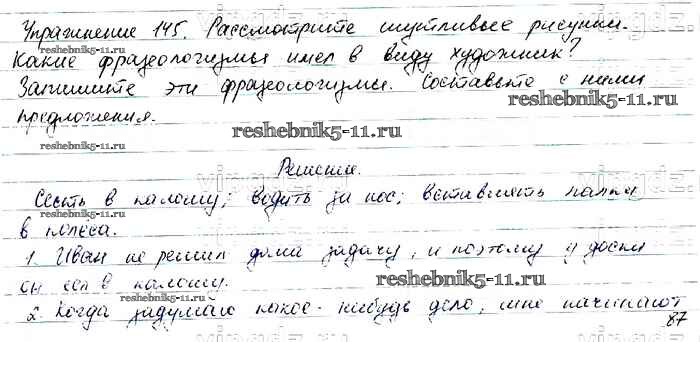 Упражнение 145. Рассмотрите шутливые рисунки.
reshebnik5-11.ru
Какие фразеологизмы имел в виду художник?
Запишите эти фразеологизмы. Составьте с ними
reshebnik5-11.ru
предложения.
reshebnik5-11.ru
reshebnik5-11.ru
Решение.
Сесть в калошу; водить за нос; вставлять палки
reshebnik5-11.ru
в колеса.
1. Иван не решил дома задачу, и поэтому у доски
он сел в калошу.
reshebnik5-11.ru
reshebnik5-11.ru
2. Когда задумаю какое-нибудь дело, мне начинают
87